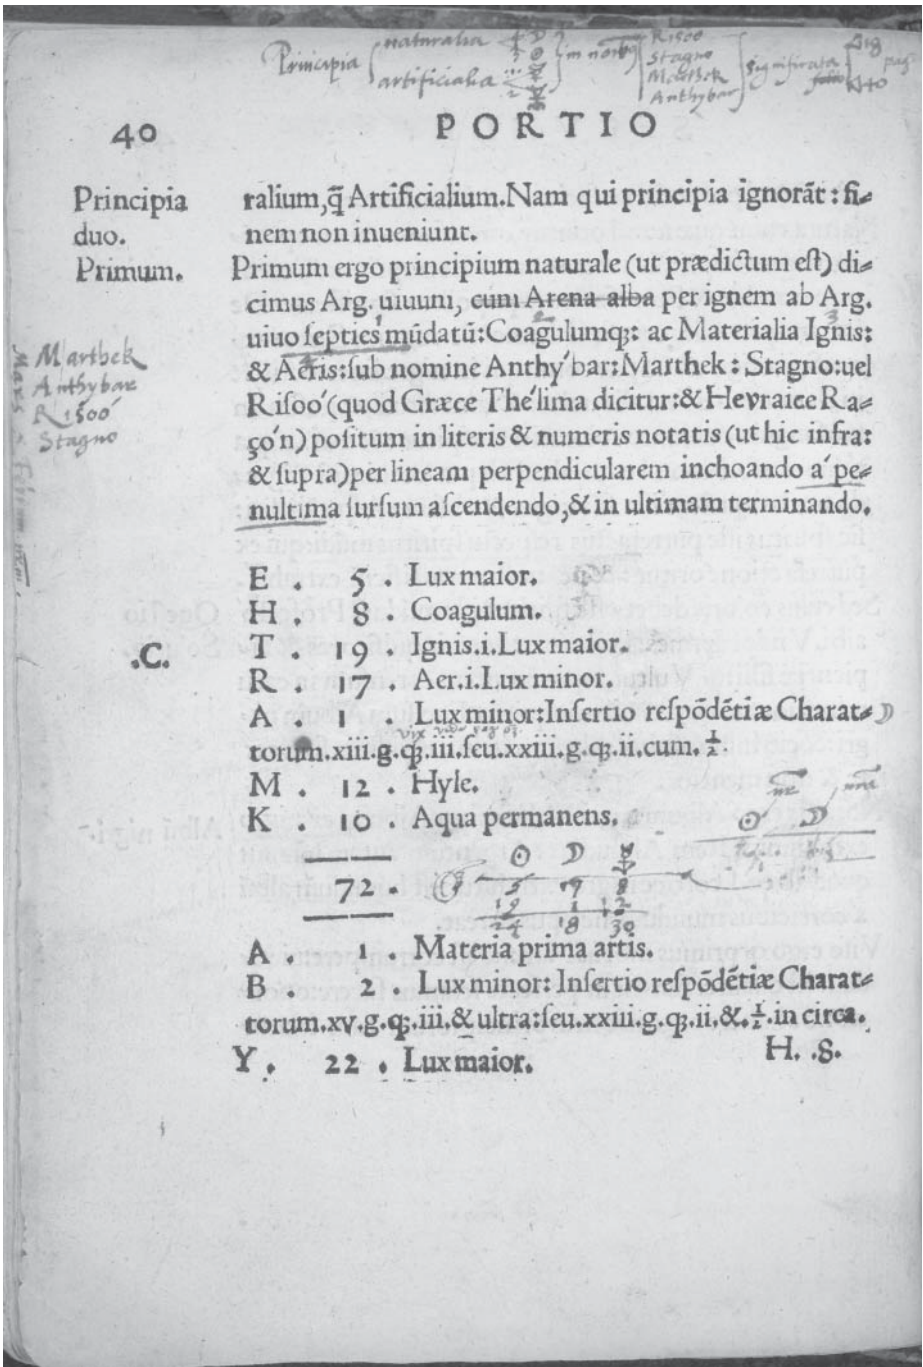 Principia naturalia artificialia in Risoo Stagno Marthek Anthybar significata pag 40
40
PORTIO
Principia duo.
Primum.
ralium,q̃ Artificialium.Nam qui principia ignorãt : fi⸗
nem non inueniunt.
Primum ergo principium naturale (ut prædictum eſt) di⸗
cimus Arg. uiuum, cum Arena alba per ignem ab Arg.
uiuo ſepties mũdatũ:Coagulumqꝫ: ac Materialia Ignis:
& Aeris:ſub nomine Anthy´bar: Marthek : Stagno:uel
Riſoo´(quod Græce The´lima dicitur:& Hevraice Ra⸗
ço´n) poſitum in literis & numeris notatis (ut hic infra:
& ſupra)per lineam perpendicularem inchoando a´ pe⸗
nultima ſurſum aſcendendo,& in ultimam terminando.
Marthek
Anthybar
Risoo´
Stagno
E . 5 . Lux maior.
H . 8 . Coagulum.
.C.
T . 19 . Ignis.i.Lux maior.
R . 17 . Aer.i.Lux minor.
A . 1 . Lux minor:Inſertio reſpõdẽtiæ Charat⸗ ☽
torum.xiii.g.qꝫ.iii.ſeu.xxiii.g.qꝫ.ii.cum.½.
M . 12 . Hyle.
K . 10 . Aqua permanens.
☉ ☽
☉ ☽ ☿
72 .
5 17 8
19 1 12
24 18 30
A . 1 . Materia prima artis.
B . 2 . Lux minor: Inſertio reſpõdẽtiæ Charat⸗
torum.xv.g.qꝫ.iii.& ultra:ſeu.xxiii.g.qꝫ.ii.&.½.in circa.
Y . 22 . Lux maior. H. .8.